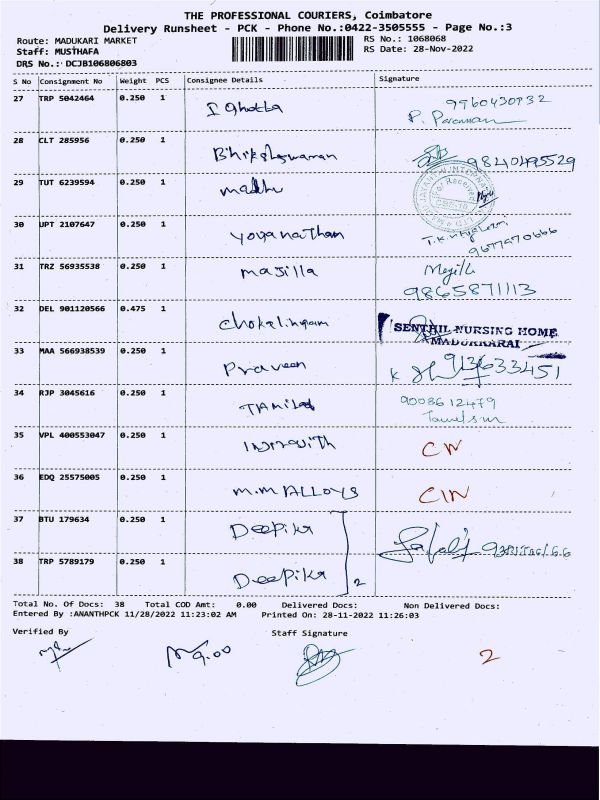 THE PROFESSIONAL COURIERS, Coimbatore
Delivery Runsheet - PCK - Phone No.:0422-3505555 - Page No.:3
Route: MADUKARI MARKET RS No.: 1068068
Staff: MUSTHAFA RS Date: 28-Nov-2022
DRS No.: DCJB106806803
S No Consignment No Weight PCS Consignee Details Signature
27 TRP 5042464 0.250 1
28 CLT 285956 0.250 1 9840495529
29 TUT 6239594 0.250 1 madhu
For Received
30 UPT 2107647 0.250 1 yoganatham
31 TRZ 56935538 0.250 1 majilla
9865871113
32 DEL 901120566 0.475 1 chokalingam SENTHIL NURSING HOME
MADUKKARAI
33 MAA 566938539 0.250 1 Praveen
34 RJP 3045616 0.250 1 9008612479
35 VPL 400553047 0.250 1 CW
36 EDQ 25575005 0.250 1 M.M ALLOYS CIN
37 BTU 179634 0.250 1 Deepika
38 TRP 5789179 0.250 1 Deepika 2
Total No. Of Docs: 38 Total COD Amt: 0.00 Delivered Docs: Non Delivered Docs:
Entered By :ANANTHPCK 11/28/2022 11:23:02 AM Printed On: 28-11-2022 11:26:03
Verified By Staff Signature
9.00 2